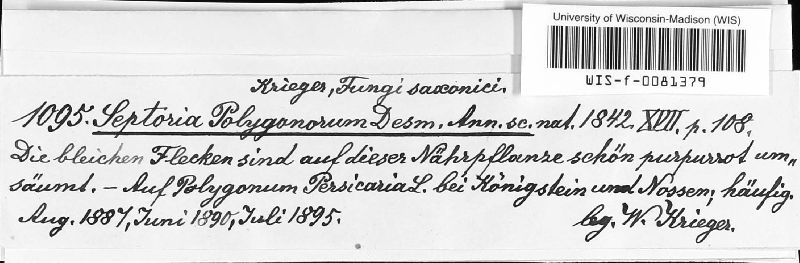 University of Wisconsin-Madison (WIS)
WIS-f-0081379
Krieger, Fungi saxonici.
1095. Septoria Polygonorum Desm. Ann. sc. nat. 1842. XVII. p. 108.
Die bleichen Flecken sind auf dieser Nährpflanze schön purpurrot um„
säumt. – Auf Polygonum Persicaria L. bei Königstein und Nossen; häufig.
Aug. 1887, Juni 1890, Juli 1895.
leg. W. Krieger.